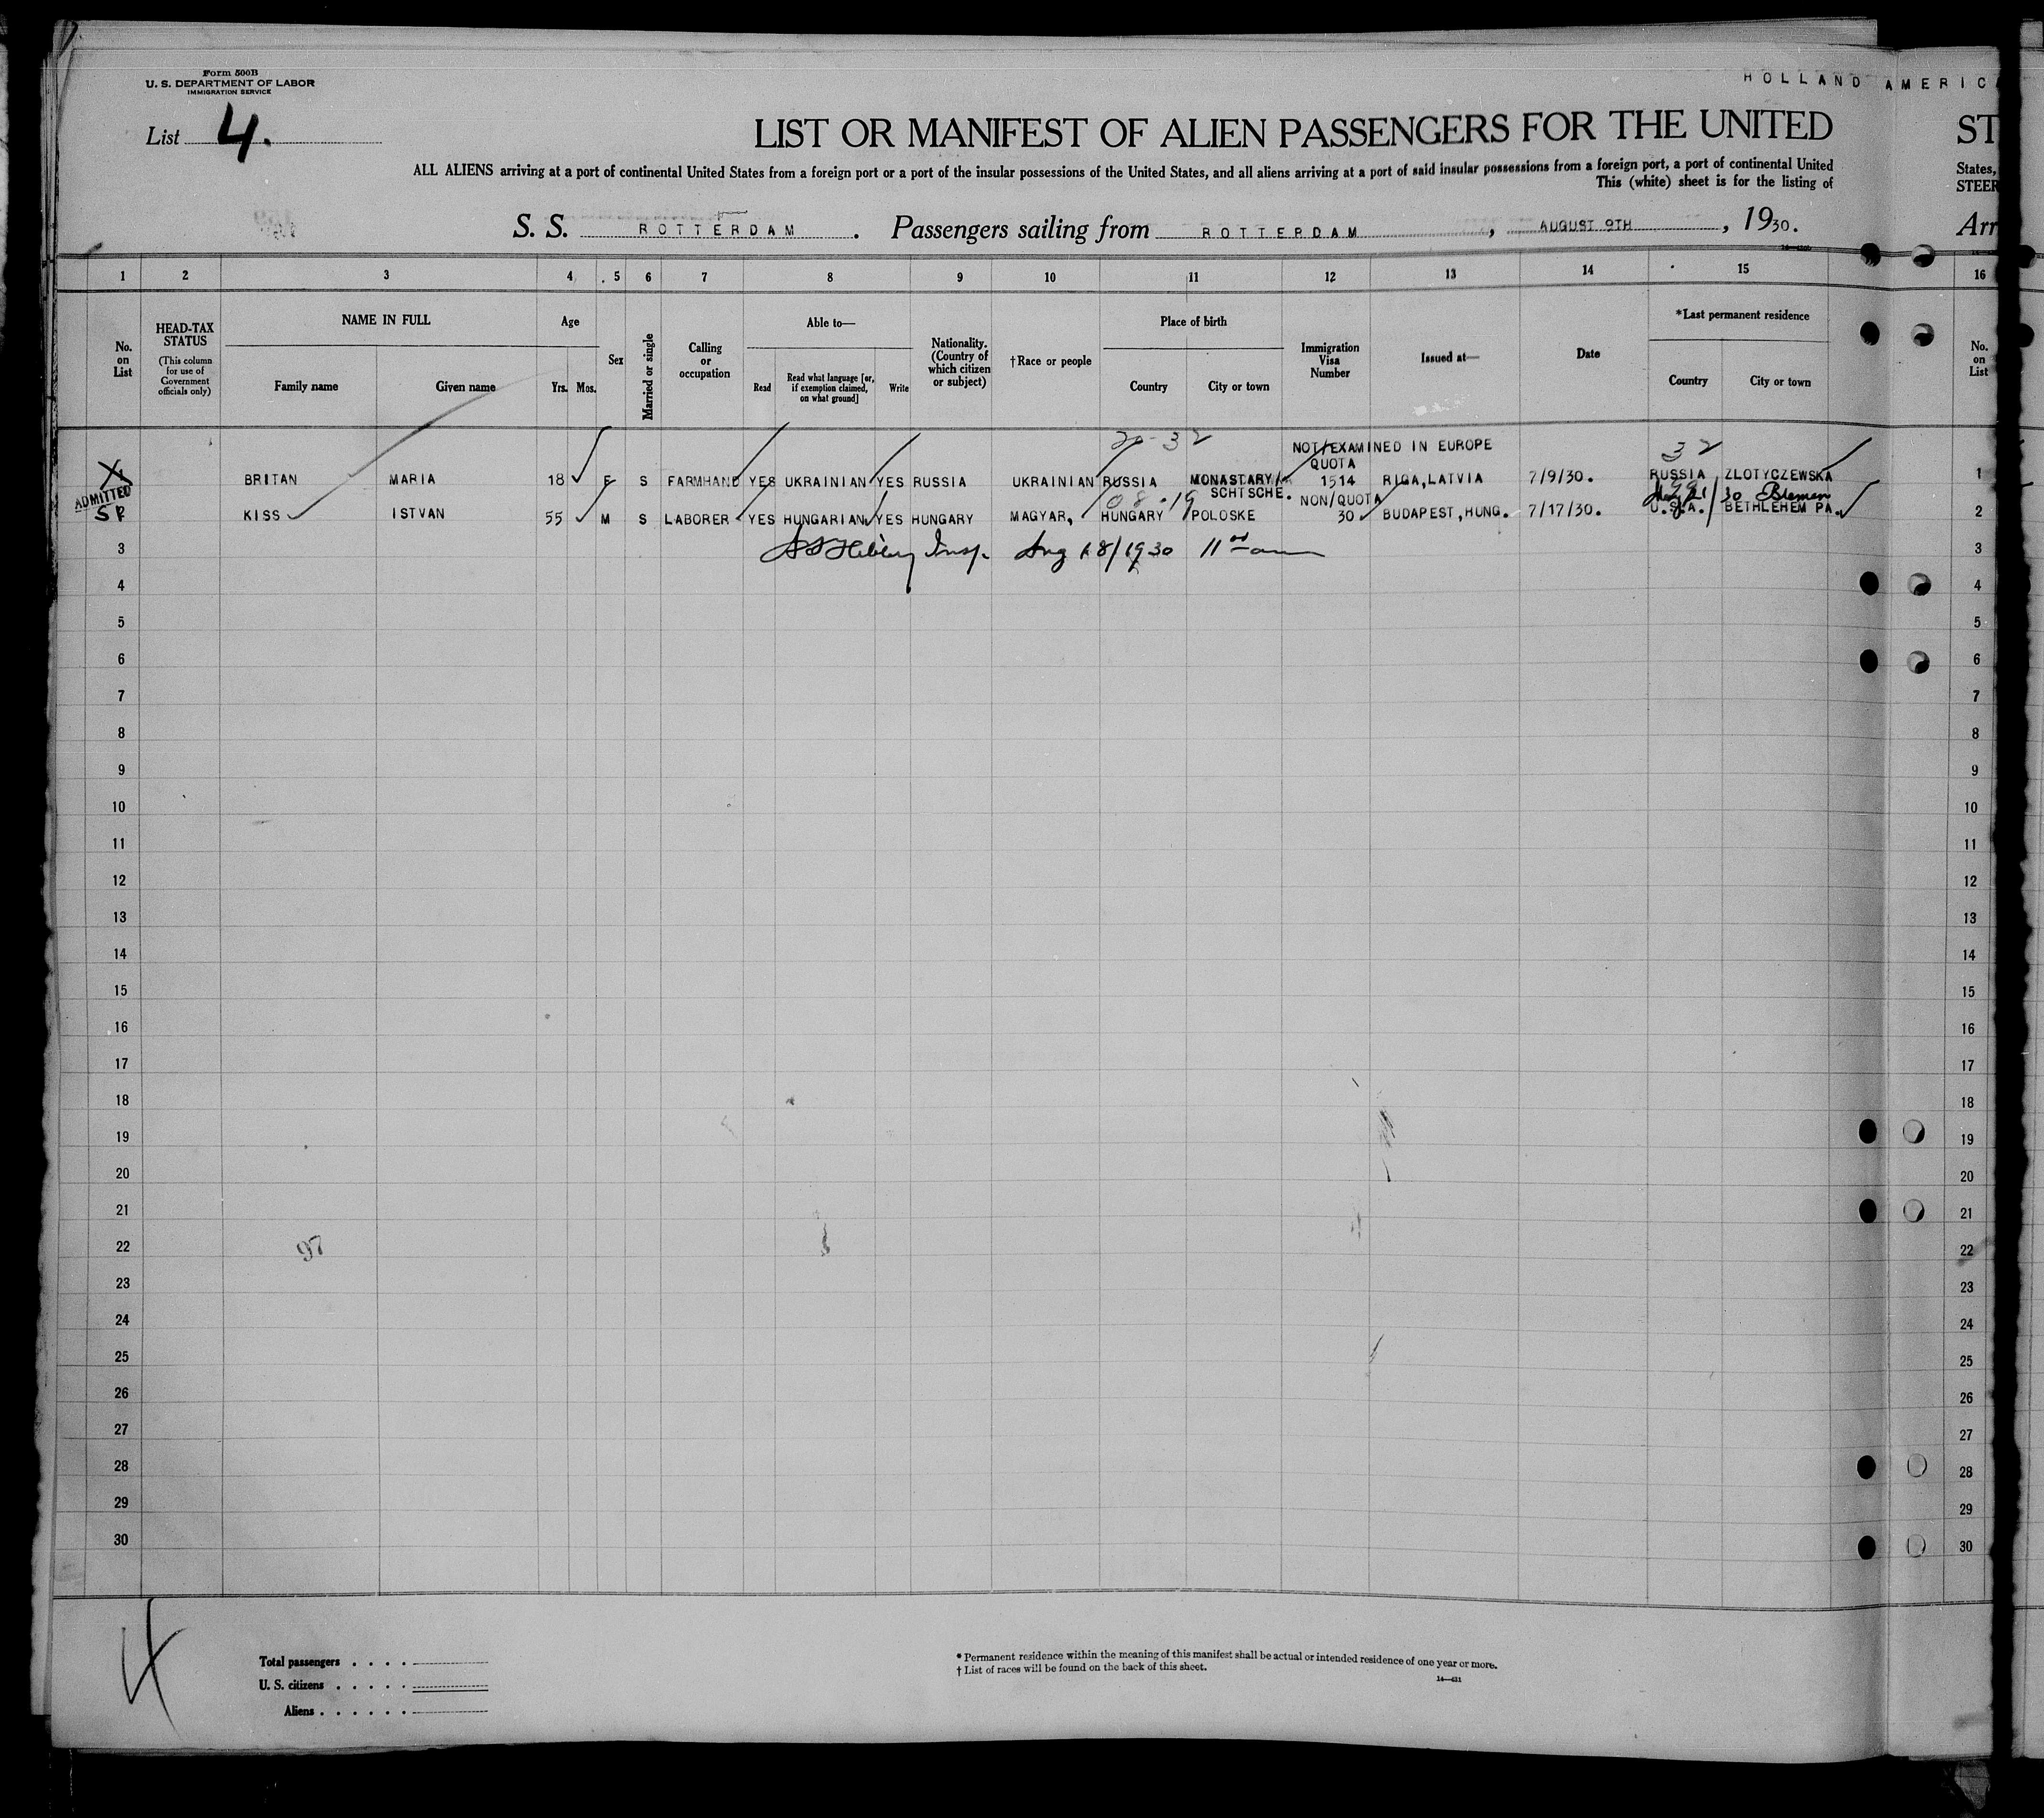 Form 500B
U. S. DEPARTMENT OF LABOR
IMMIGRATION SERVICE
HOLLAND AMERICA
List 4.
LIST OR MANIFEST OF ALIEN PASSENGERS FOR THE UNITED ST
ALL ALIENS arriving at a port of continental United States from a foreign port or a port of the insular possessions of the United States, and all aliens arriving at a port of said insular possessions from a foreign port, a port of continental United States,
This (white) sheet is for the listing of STEER
S. S. ROTTERDAM . Passengers sailing from ROTTERDAM , AUGUST 9TH , 1930. Arr
1 2 3 4 5 6 7 8 9 10 11 12 13 14 15 16
No. on List
HEAD-TAX STATUS (This column for use of Government officials only)
NAME IN FULL
Family name Given name
Age
Yrs. Mos.
Sex
Married or single
Calling or occupation
Able to—
Read Read what language [or, if exemption claimed, on what ground] Write
Nationality. (Country of which citizen or subject)
†Race or people
Place of birth
Country City or town
Immigration Visa Number
Issued at—
Date
*Last permanent residence
Country City or town
No. on List
20-32 NOT/EXAMINED IN EUROPE 32
QUOTA
1 BRITAN MARIA 18 F S FARMHAND YES UKRAINIAN YES RUSSIA UKRAINIAN RUSSIA MONASTARY/ 1514 RIGA,LATVIA 7/9/30. RUSSIA ZLOTYCZEWSKA 1
ADMITTED 08.19 SCHTSCHE. NON/QUOTA 30 Bremen
2 KISS ISTVAN 55 M S LABORER YES HUNGARIAN YES HUNGARY MAGYAR, HUNGARY POLOSKE 30 BUDAPEST,HUNG. 7/17/30. U.S.A. BETHLEHEM PA. 2
3 Insp. Aug 18/1930 11 00 am 3
4 4
5 5
6 6
7 7
8 8
9 9
10 10
11 11
12 12
13 13
14 14
15 15
16 16
17 17
18 18
19 19
20 20
21 21
22 97 22
23 23
24 24
25 25
26 26
27 27
28 28
29 29
30 30
4
Total passengers . . . .
U. S. citizens . . . . .
Aliens . . . . . .
* Permanent residence within the meaning of this manifest shall be actual or intended residence of one year or more.
† List of races will be found on the back of this sheet.